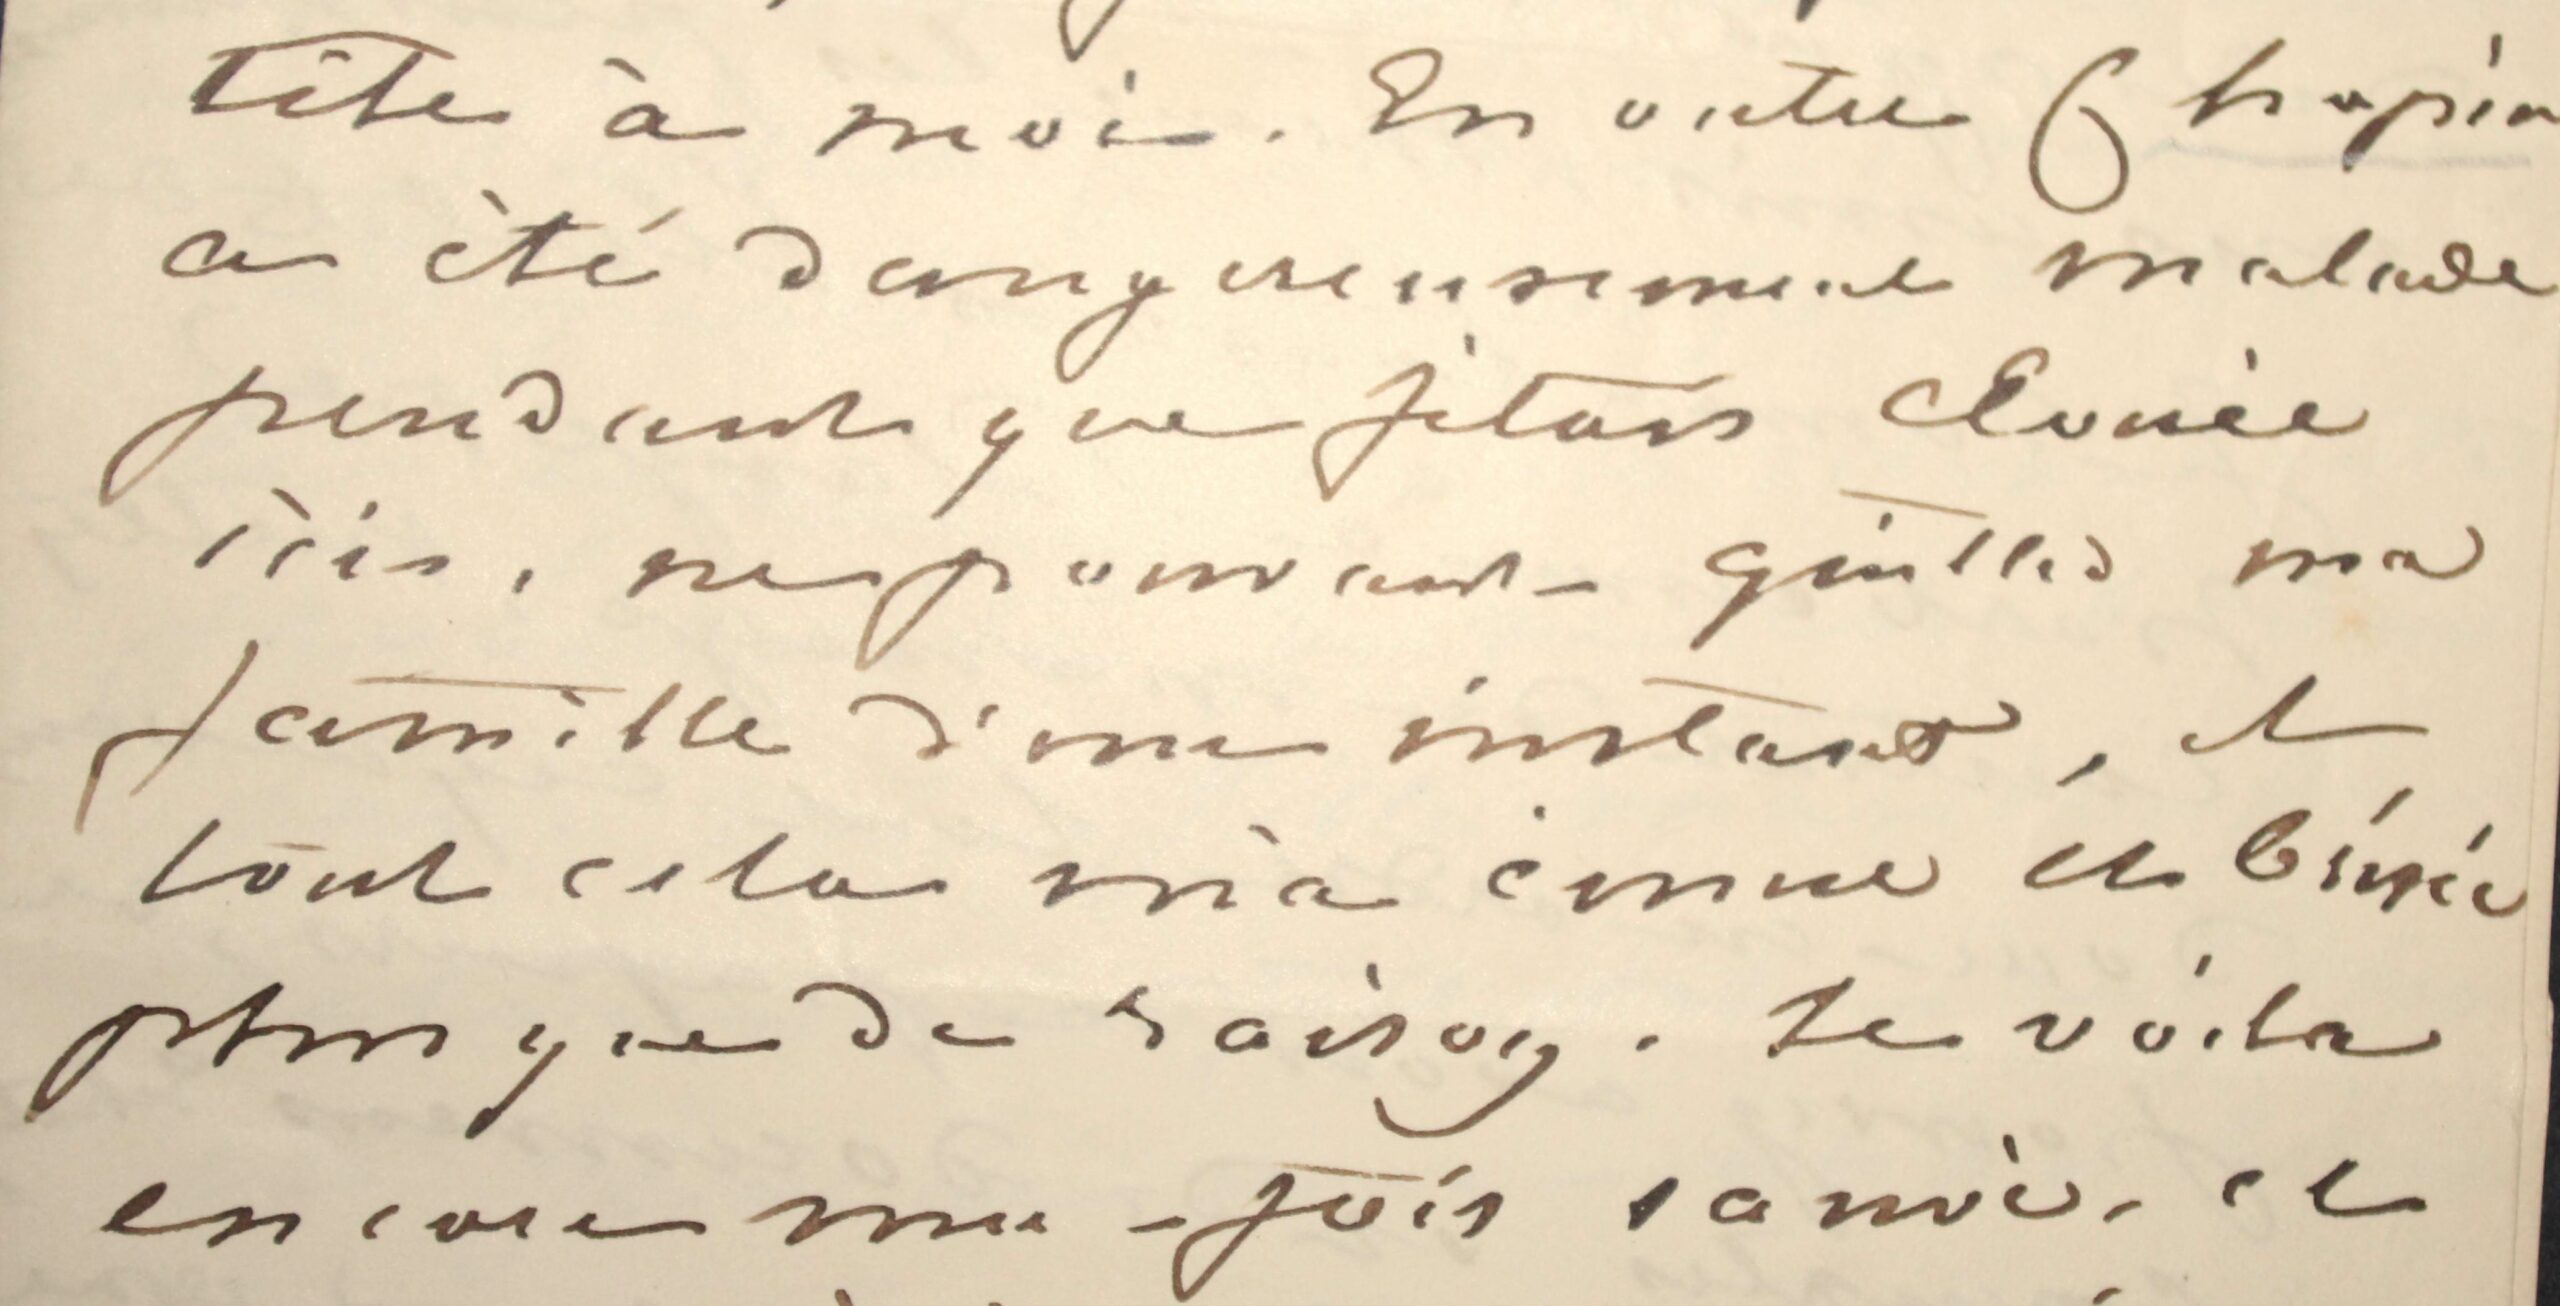 tête à moi. En outre Chopin
a été dangereusement malade
pendant que j'étais clouée
ici, ne pouvant quitter ma
famille d'un instant, et
tout cela m'a émue et brisée
plus que de raison. Le voilà
encore une fois sauvé, et